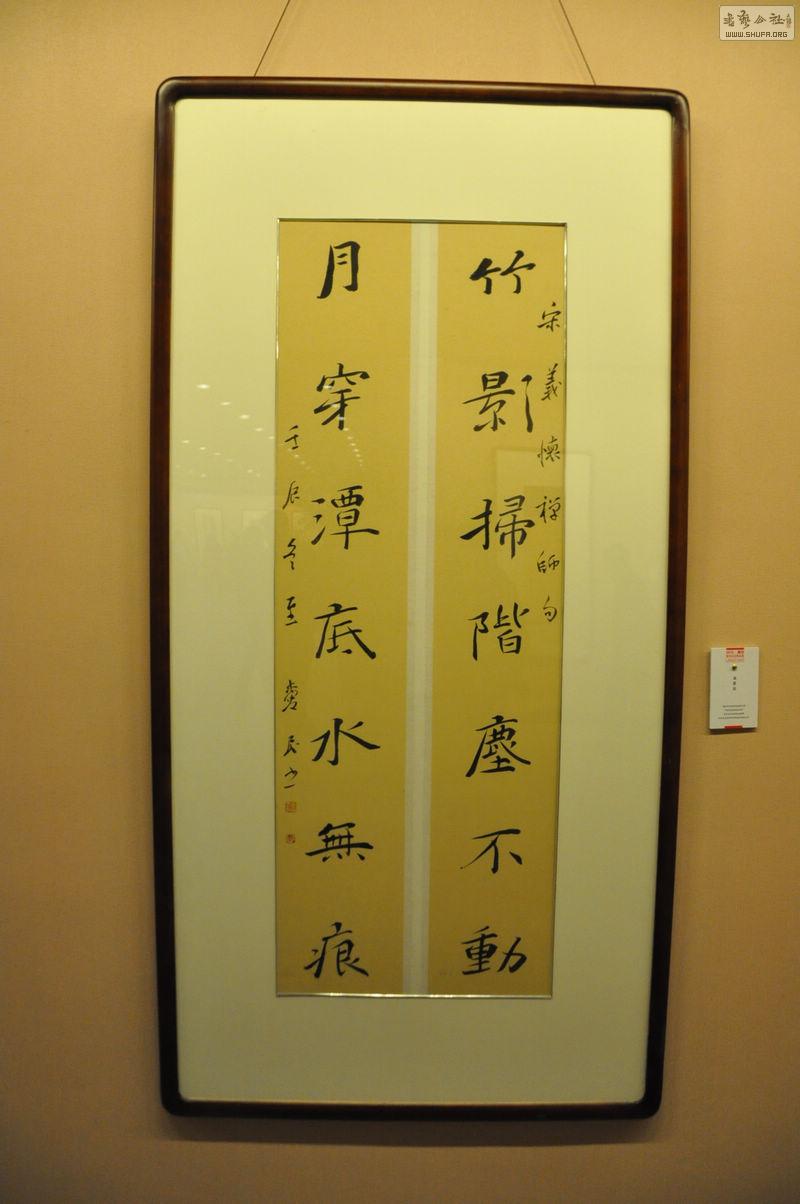 竹影掃階塵不動
宋義懷禪師句
月穿潭底水無痕
壬辰冬至
書藝公社
WWW.SHUFA.ORG